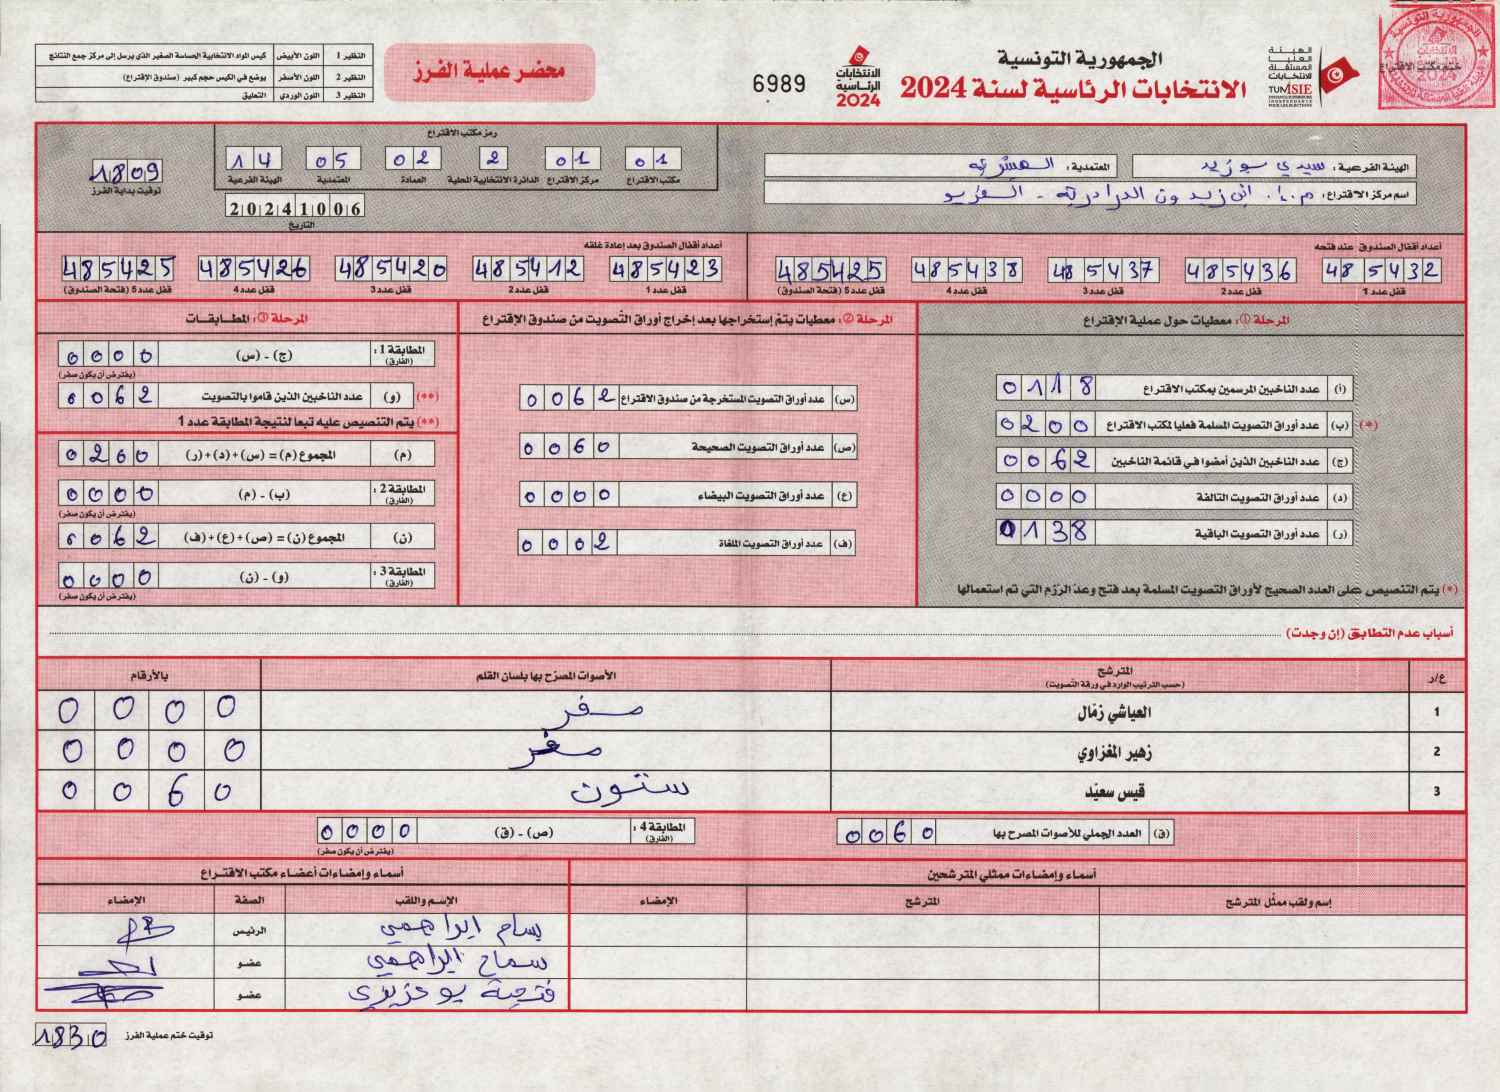 الجمهورية التونسية
الانتخابات الرئاسية لسنة 2024
الهيئة العليا المستقلة للانتخابات
TUNISIE
الانتخابات الرئاسية 2024
6989
محضر عملية الفرز
النظير 1 اللون الأبيض كيس المواد الانتخابية الحساسة الصغير الذي يرسل إلى مركز جمع النتائج
النظير 2 اللون الأصفر يوضع في الكيس حجم كبير (صندوق الإقتراع)
النظير 3 اللون الوردي التعليق
ختم مكتب الاقتراع
الهيئة الفرعية: سيدي بوزيد المعتمدية:
اسم مركز الاقتراع: م.ا. ابن زيدون
رمز مكتب الاقتراع
01 01 2 02 05 14
مكتب الاقتراع مركز الاقتراع الدائرة الانتخابية المحلية العمادة المعتمدية الهيئة الفرعية
20241006
التاريخ
1809
توقيت بداية الفرز
أعداد أقفال الصندوق عند فتحه
485432 485436 485437 485438 485425
قفل عدد 1 قفل عدد 2 قفل عدد 3 قفل عدد 4 قفل عدد 5 (فتحة الصندوق)
أعداد أقفال الصندوق بعد إعادة غلقه
485423 485412 485420 485426 485425
قفل عدد 1 قفل عدد 2 قفل عدد 3 قفل عدد 4 قفل عدد 5 (فتحة الصندوق)
المرحلة ①: معطيات حول عملية الإقتراع
(أ) عدد الناخبين المرسمين بمكتب الاقتراع 0118
(*) (ب) عدد أوراق التصويت المسلمة فعليا لمكتب الاقتراع 0200
(ج) عدد الناخبين الذين أمضوا في قائمة الناخبين 0062
(د) عدد أوراق التصويت التالفة 0000
(ر) عدد أوراق التصويت الباقية 0138
(*) يتم التنصيص على العدد الصحيح لأوراق التصويت المسلمة بعد فتح وعدّ الرّزم التي تم استعمالها
المرحلة ②: معطيات يتمّ إستخراجها بعد إخراج أوراق التّصويت من صندوق الإقتراع
(س) عدد أوراق التصويت المستخرجة من صندوق الاقتراع 0062
(ص) عدد أوراق التصويت الصحيحة 0060
(ع) عدد أوراق التصويت البيضاء 0000
(ف) عدد أوراق التصويت الملغاة 0002
المرحلة ③: المطابقات
المطابقة 1: (الفارق) (ج) - (س) 0000
(يفترض أن يكون صفر)
(**) (و) عدد الناخبين الذين قاموا بالتصويت 0062
(**) يتم التنصيص عليه تبعا لنتيجة المطابقة عدد 1
(م) المجموع (م) = (س)+(د)+(ر) 0260
المطابقة 2: (الفارق) (ب) - (م) 0000
(يفترض أن يكون صفر)
(ن) المجموع (ن) = (ص)+(ع)+(ف) 0062
المطابقة 3: (الفارق) (و) - (ن) 0000
(يفترض أن يكون صفر)
أسباب عدم التطابق (إن وجدت)
ع/ر المترشح (حسب الترتيب الوارد في ورقة التصويت) الأصوات المصرّح بها بلسان القلم بالأرقام
1 العياشي زمّال صفر 0000
2 زهير المغزاوي صفر 0000
3 قيس سعيّد ستون 0060
(ق) العدد الجملي للأصوات المصرح بها 0060
المطابقة 4: (الفارق) (ص) - (ق) 0000
(يفترض أن يكون صفر)
أسماء وإمضاءات ممثلي المترشحين
إسم ولقب ممثّل المترشح المترشح الإمضاء
أسماء وإمضاءات أعضاء مكتب الاقتراع
الإسم واللقب الصفة الإمضاء
بسام ابراهمي الرئيس
سماح ابراهمي عضو
فتحية بوعزيزي عضو
توقيت ختم عملية الفرز 1830